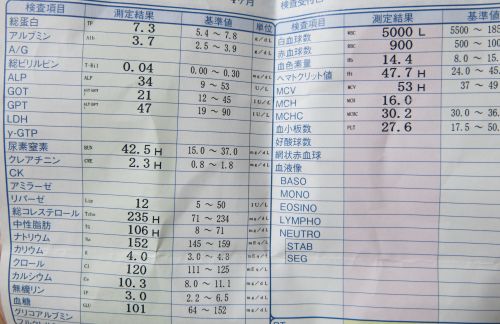 4ヶ月
検査項目 測定結果 基準値 単位
総蛋白 TP 7.3 5.4 ～ 7.8 g/dL
アルブミン Alb 3.7 2.5 ～ 3.9 g/dL
A/G
総ビリルビン T-Bil 0.04 0.00 ～ 0.30 mg/dL
ALP ALP 34 9 ～ 53 U/L
GOT 21 12 ～ 45 IU/L
GPT 47 19 ～ 90 IU/L
LDH
γ-GTP
尿素窒素 BUN 42.5 H 15.0 ～ 37.0 mg/dL
クレアチニン CRE 2.3 H 0.8 ～ 1.8 mg/dL
CK
アミラーゼ
リパーゼ Lip 12 5 ～ 50 IU/L
総コレステロール Tcho 235 H 71 ～ 234 mg/dL
中性脂肪 TG 106 H 8 ～ 71 mg/dL
ナトリウム Na 152 145 ～ 159 mEq/L
カリウム K 4.0 3.0 ～ 4.8 mEq/L
クロール Cl 120 111 ～ 125 mEq/L
カルシウム Ca 10.3 8.0 ～ 11.1 mg/dL
無機リン IP 3.0 2.2 ～ 6.5 mg/dL
血糖 GLU 101 64 ～ 152 mg/dL
グリコアルブミン
検査受付
検査項目 測定結果 基準値
白血球数 WBC 5000 L 5500 ～ 185
赤血球数 RBC 900 500 ～ 100
血色素量 Hb 14.4 8.0 ～ 15.
ヘマトクリット値 Ht 47.7 H 24.0 ～ 45.
MCV MCV 53 H 37 ～ 49
MCH MCH 16.0
MCHC MCHC 30.2 30.0 ～ 36.
血小板数 PLT 27.6 17.5 ～ 50.
好酸球数
網状赤血球
血液像
BASO
MONO
EOSINO
LYMPHO
NEUTRO
STAB
SEG